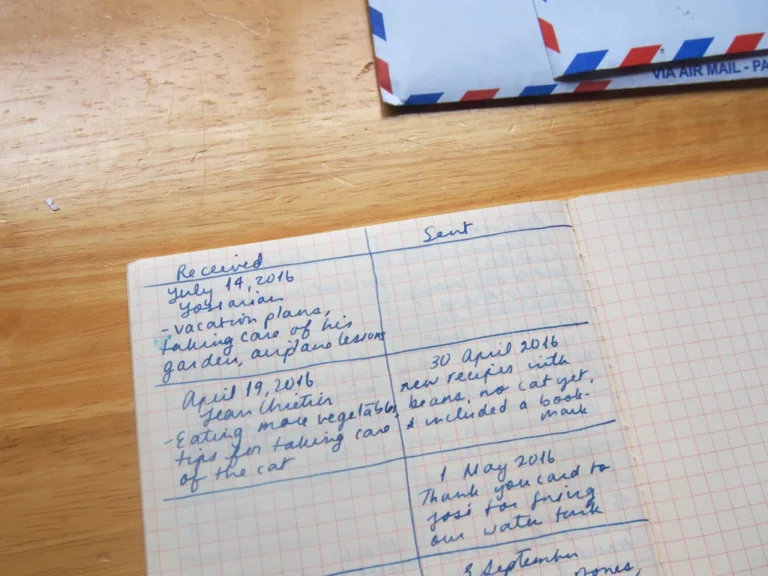 VIA AIR MAIL - PA
Received
July 14, 2016
Yossarian
- vacation plans,
taking care of his
garden, airplane lessons
April 19, 2016
Jean Chretien
- Eating more vegetables,
tips for taking care
of the cat
Sent
30 April 2016
new recipes with
beans, no cat yet,
& included a book-
mark
1 May 2016
Thank you card to
José for fixing
our water tank
September